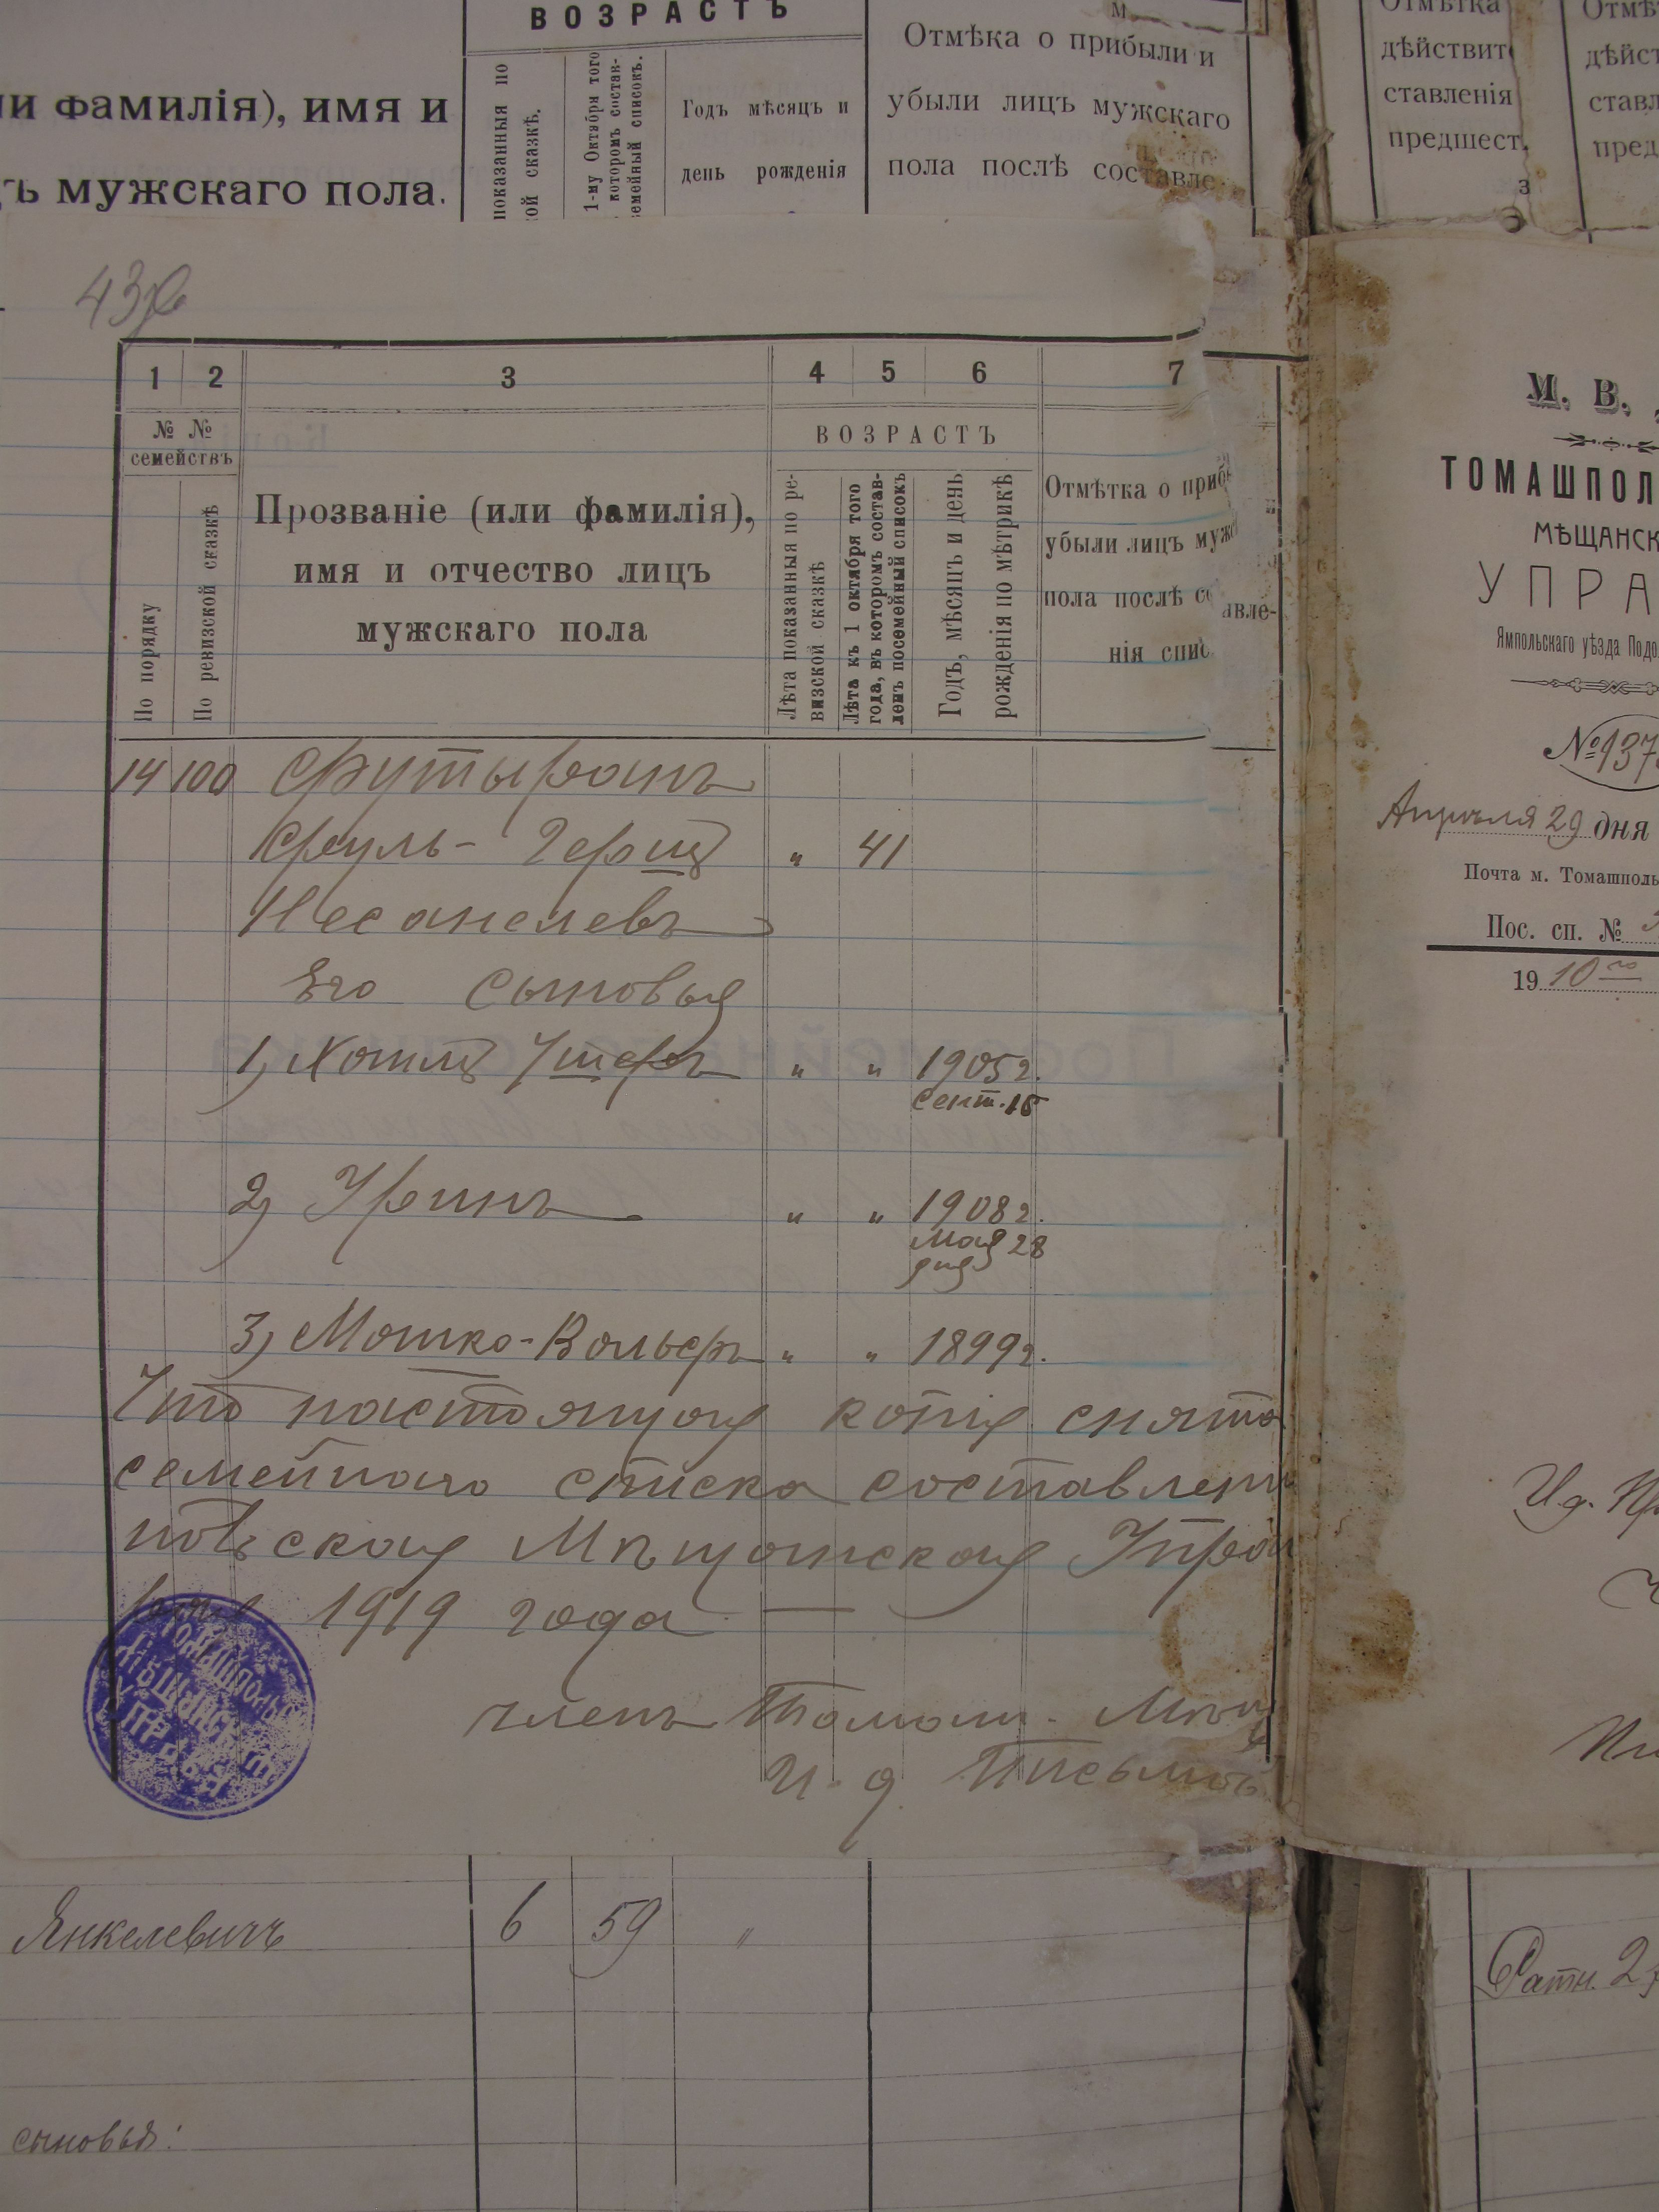 ВОЗРАСТЪ
ли фамилія), имя и
мужскаго пола.
показанныя по
ой сказкѣ.
1-му Октября того
которомъ состав-
семейный списокъ.
Годъ мѣсяцъ и
день рожденія
Отмѣка о прибыли и
убыли лицъ мужскаго
пола послѣ составле-
Отмѣтка
дѣйствит
ставленія
предшест.
3
Отмѣ
дѣйст
ставл
пред
1 2 3 4 5 6 7
№ №
семействъ
По порядку
По ревизской сказкѣ
Прозваніе (или фамилія),
имя и отчество лицъ
мужскаго пола
ВОЗРАСТЪ
Лѣта показанныя по ре-
визской сказкѣ
Лѣта къ 1 октября того
года, въ которомъ состав-
ленъ посемейный списокъ
Годъ, мѣсяцъ и день
рожденія по мѣтрикѣ
Отмѣтка о приб
убыли лицъ муж
пола послѣ со авле-
нія спис
14 100 Футыранъ
Сруль- Герш „ 41
Несанелевъ
Его сыновья
1) Хаимъ Ушеръ „ „ 1905 г.
Сент. 15
2) „ „ 1908 г.
Мая 28
дня
3) Мошко-Вольфъ „ „ 1899 г.
Что настоящая копія снята
семейнаго списка составлен
польская Мѣщанская Упра
1919 года —
членъ Томашп. Мѣщ
И. д. Письмов
ТОМАШПОЛЬС
МѢЩАНСК
УПРАВА
М. В.
ТОМАШПОЛ
МѢЩАНСК
УПРА
Ямпольскаго уѣзда Подо
№ 137
Апрѣля 29 дня
Почта м. Томашполь
Пос. сп. №
19 10 го
И. д.
Янкелевичъ 6 59 „
сыновья:
Ратн. 2